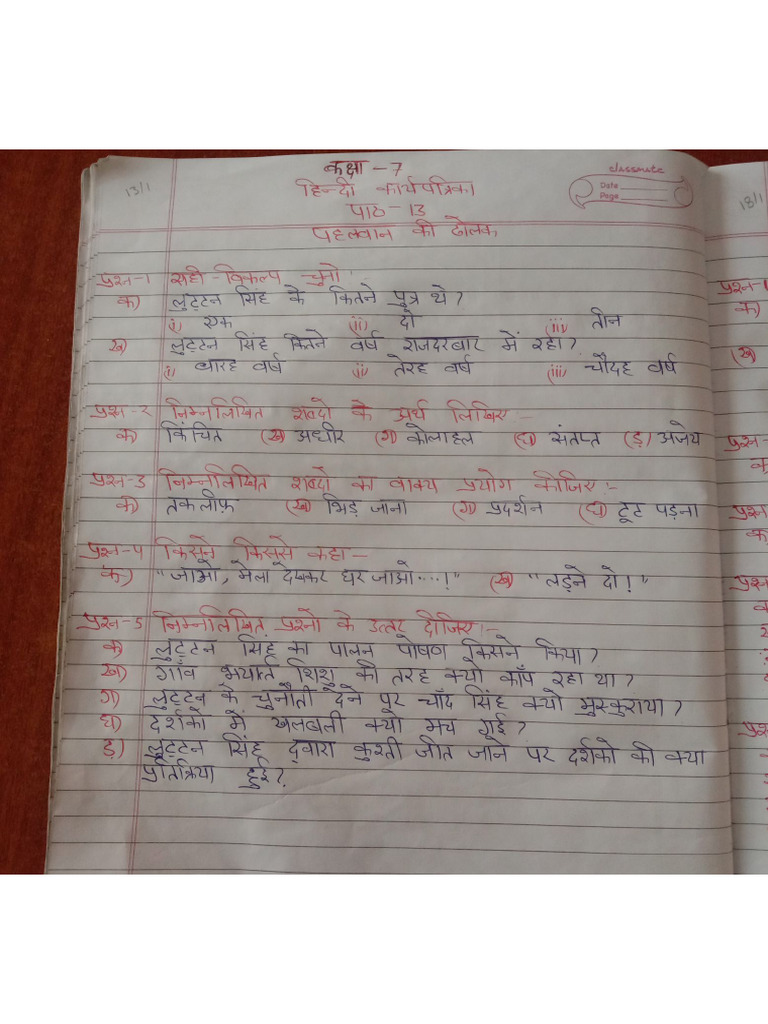 कक्षा - 7
classmate
13/1
हिन्दी कार्यपत्रिका
Date
Page
18/1
पाठ - 13
पहलवान की ढोलक
प्रश्न-1 सही विकल्प चुनो :-
क) लुट्टन सिंह के कितने पुत्र थे ?
(i) एक (ii) दो (iii) तीन
ख) लुट्टन सिंह कितने वर्ष राजदरबार में रहा ?
(i) बारह वर्ष (ii) तेरह वर्ष (iii) चौदह वर्ष
प्रश्न-2 निम्नलिखित शब्दो के अर्थ लिखिए :-
क) किंचित (ख) अधीर (ग) कोलाहल (घ) संतप्त (ड़) अजेय
प्रश्न-3 निम्नलिखित शब्दो का वाक्य प्रयोग कीजिए :-
क) तकलीफ़ (ख) भिड़ जाना (ग) प्रदर्शन (घ) टूट पड़ना
प्रश्न-4 किसने किससे कहा -
क) "जाओ, मेला देखकर घर जाओ....!" (ख) "लड़ने दो!"
प्रश्न-5 निम्नलिखित प्रश्नो के उत्तर दीजिए :-
क) लुट्टन सिंह का पालन पोषण किसने किया ?
ख) गाँव भयार्त शिशु की तरह क्यो काँप रहा था ?
ग) लुट्टन के चुनौती देने पर चाँद सिंह क्यो मुस्कुराया ?
घ) दर्शको में खलबली क्यो मच गई ?
ड़) लुट्टन सिंह द्वारा कुश्ती जीत जाने पर दर्शको की क्या
प्रतिक्रिया हुई ?